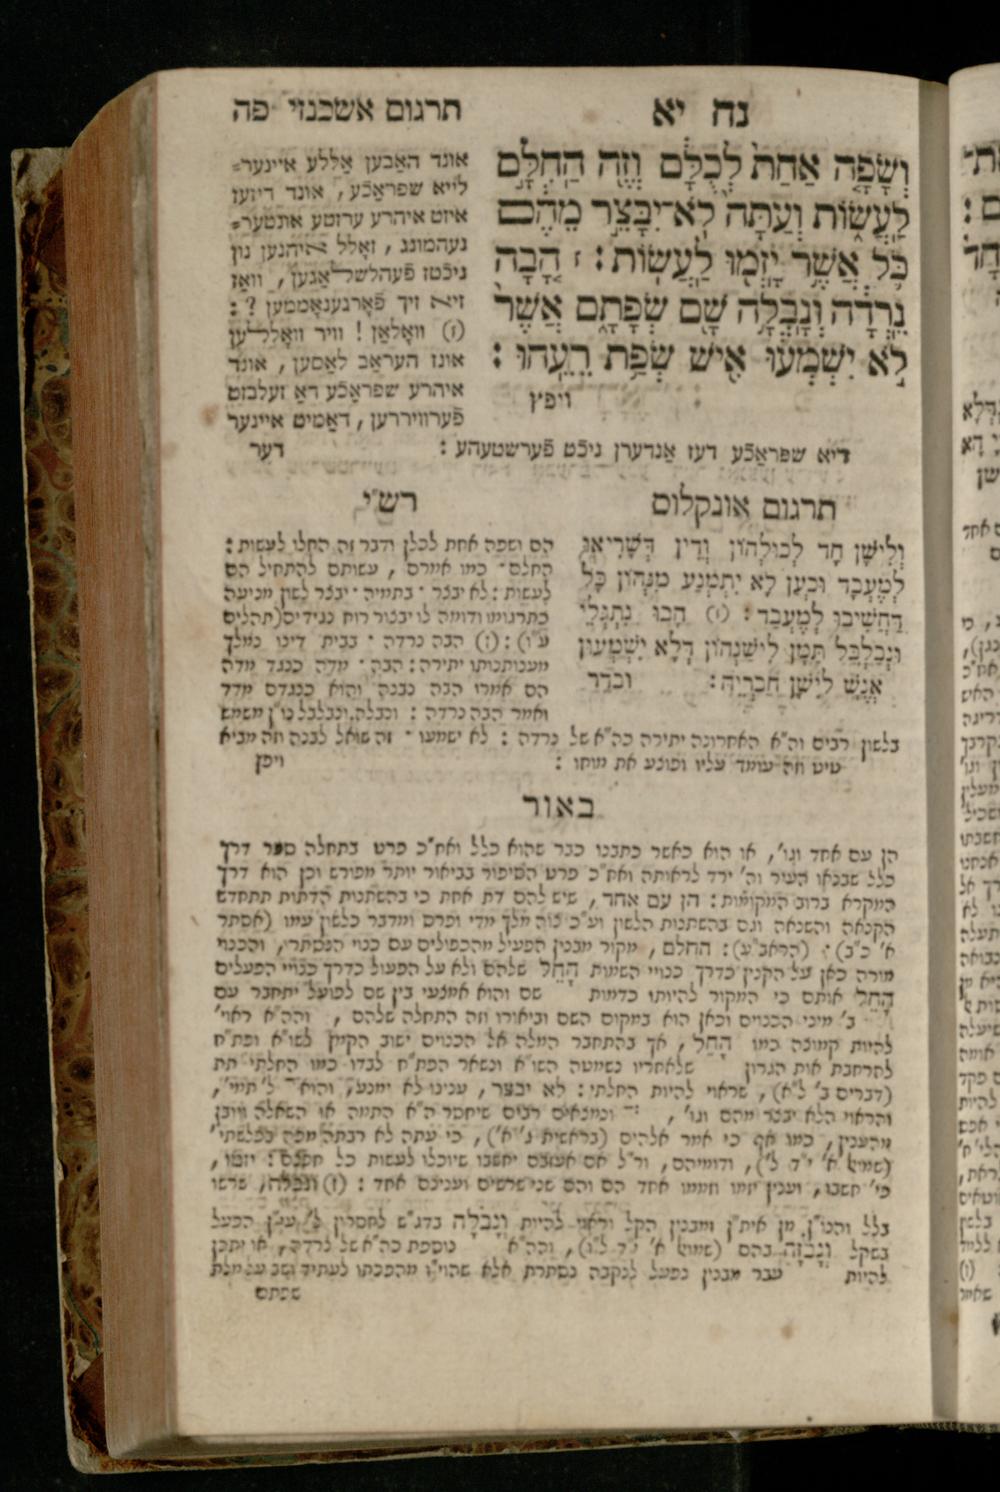 נח יא
תרגום אשכנזי פה
וְשָׂפָ֤ה אַחַת֙ לְכֻלָּ֔ם וְזֶ֖ה הַחִלָּ֣ם
לַעֲשׂ֑וֹת וְעַתָּה֙ לֹֽא־יִבָּצֵ֣ר מֵהֶ֔ם
כֹּ֛ל אֲשֶׁ֥ר יָזְמ֖וּ לַעֲשֽׂוֹת׃ ז הָ֚בָה
נֵֽרְדָ֔ה וְנָבְלָ֥ה שָׁ֖ם שְׂפָתָ֑ם אֲשֶׁר֙
לֹ֣א יִשְׁמְע֔וּ אִ֖ישׁ שְׂפַ֥ת רֵעֵֽהוּ׃
ויפץ
אונד האַבען אַללע איינער=
לייא שפראַכע, אונד דיזען
איזט איהרע ערזטע אונטער=
נעהמונג, זאָלל איהנען נון
ניכט פֿעהלשלאַגען, וואַז
זיא זיך פֿאָרגענאָממען ? :
(ז) וואָלאַן ! וויר וואָללען
אונז העראַב לאַסען, אונד
איהרע שפראַכע דאַ זעלבזט
פֿערוויררען, דאַמיט איינער
דיא שפראַכע דעז אַנדערן ניכט פֿערשטעהע :
דער
תרגום אונקלוס
וְלִישָׁן חָד לְכוּלְהוֹן וְדֵין דְּשָׁרִיאוּ
לְמֶעְבַּד וּכְעַן לָא יִתְמְנַע מִנְּהוֹן כָּל
דְּחַשִּׁיבוּ לְמֶעְבַּד : (ז) הָבוּ נִתְגְּלֵי
וּנְבַלְבֵּל תַּמָּן לִישַׁנְהוֹן דְּלָא יִשְׁמְעוּן
אֱנָשׁ לִישַׁן חַבְרֵיהּ :
ובדר
רש״י
הם ושפה אחת לכלן ודבר זה החלו לעשות :
החלם · כמו אמרם , עשותם להתחיל הם
לעשות : לא יבצר · בתמיה · יבצר לשון מניעה
כתרגומו ודומה לו יבצור רוח נגידים (תהלים
ע״ו) : (ז) הבה נרדה · בבית דינו נמלך
מענותנותו יתירה : הבה · מדה כנגד מדה
הם אמרו הבה נבנה והוא כנגדם מדד
ואמר הבה נרדה : ונבלה ונבלבל נו״ן משמש
בלשון רבים וה״א האחרונה יתירה כה״א של נרדה : לא ישמעו · זה שואל לבנה וזה מביא
טיט וזה עומד עליו ופוצע את מוחו :
ויפץ
באור
הן עם אחד וגו׳, או הוא כאשר כתבנו כבר שהוא כלל ואח״כ פרט בתחלה ספר דרך
כלל שבנאו העיר וה׳ ירד לראותה ואח״כ פרט הסיפור בביאור יותר מפורש וכן הוא דרך
המקרא ברוב המקומות : הן עם אחד , שיש להם דת אחת כי בהשתנות הדתות תתחדש
הקנאה והשנאה וגם בהשתנות הלשון וע״כ צוה מלך מדי ופרס ומדבר כלשון עמו (אסתר
א׳ כ״ב) · (הראב״ע) : החלם , מקור מבנין הפעיל מהכפולים עם כנוי הנסתרי, והכנוי
מורה כאן על הקנין כדרך כנויי השמות הָחֵל שלהם ולא על הפעול כדרך כנויי הפעלים
הָחֵל אותם כי המקור להיותו כדמות שם והוא אמצעי בין שם לפועל יתחבר עם
ב׳ מיני הכנוים וכאן הוא במקום השם וביאורו וזה התחלה שלהם , והה״א ראוי׳
להיות קמוצה כמו הָחֵל, אך בהתחבר המלה אל הכנוים ישוב הקמץ לשו״א ופת״ח
להרחבת אות הגרון שלאחריו נשמטה השו״א ונשאר הפת״ח לבדו כמו החלתי תת
(דברים ב׳ ל״א), שראוי להיות החלתי : לא יבצר , ענינו לא ימנע, והוא ל׳ תמי׳,
והראוי הלא יבצר מהם וגו׳ , ונמצאים רבים שיחסר ה״א התמה או השאלה ויובן
מהענין, כמו אף כי אמר אלהים (בראשית ג׳ א׳), כי עתה לא רבתה מכה בפלשתי׳
(שמואל א׳ י״ד ל׳), ודומיהם, ור״ל אם אעזבם יחשבו שיוכלו לעשות כל חפצם : יזמו ,
כי׳ חשבו, וענין יזמו וזממו אחד הם והם שני שרשים וענינם אחד : (ז) ונבלה, שרשו
בלל והנו״ן מן אית״ן ומבנין הקל וראוי להיות וְנָבֹלָּה בדג״ש לחסרון ל׳ עי״ן הפעל
בשקל וְנָבֹזָּה בהם (שמואל א׳ י״ד ל״ו), והה״א נוספת כה״א של נרדה, או יתכן
להיות עבר מבנין נפעל לנקבה נסתרת אלא שהוי״ו מהפכתו לעתיד ושב על מלת
שפתם